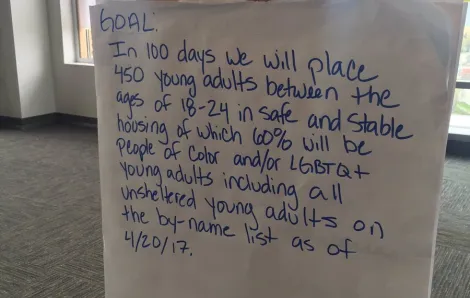 GOAL:
In 100 days we will place
450 young adults between the
ages of 18-24 in safe and stable
housing of which 60% will be
people of color and/or LGBTQ+
young adults including all
unsheltered young adults on
the by-name list as of
4/20/17.